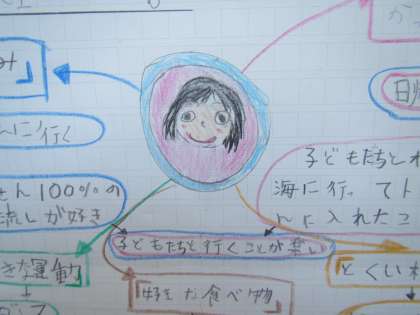 が
み』
日帰
んに行く
子どもたちとオ
海に行ってト
んに入れたこ
せん100%の
流しが好き
子どもたちと行くことが楽しい
きな運動
とくいオ
『好きな食べ物